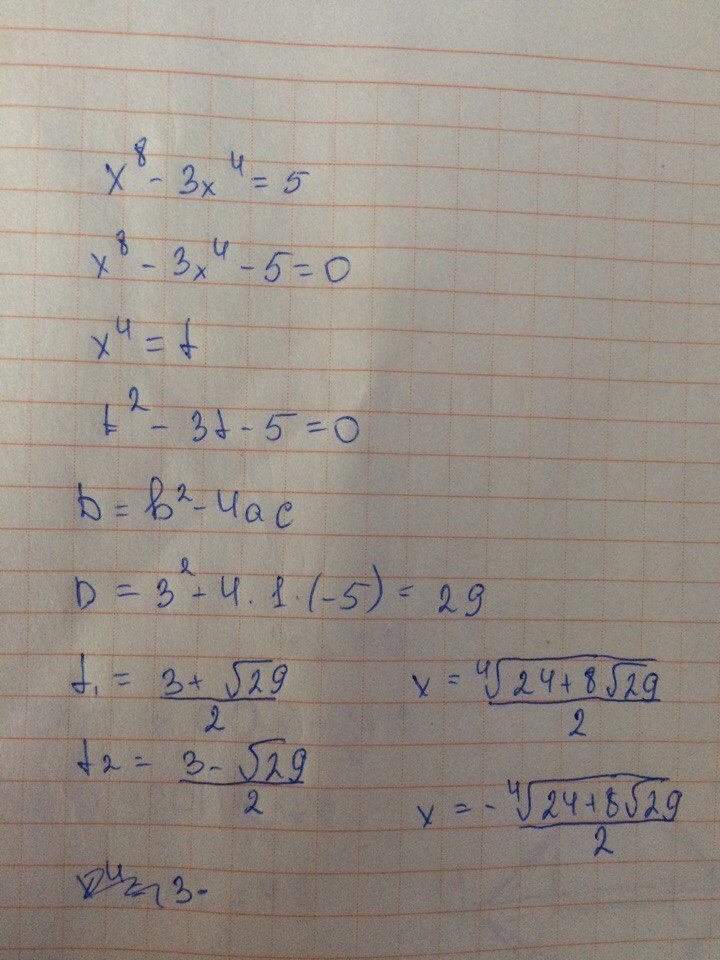 x⁸ - 3x⁴ = 5
x⁸ - 3x⁴ - 5 = 0
x⁴ = t
t² - 3t - 5 = 0
D = b² - 4ac
D = 3² - 4 · 1 · (-5) = 29
t₁ = (3 + √29)/2
x = ⁴√(24 + 8√29)/2
t₂ = (3 - √29)/2
x = - ⁴√(24 + 8√29)/2
3 -